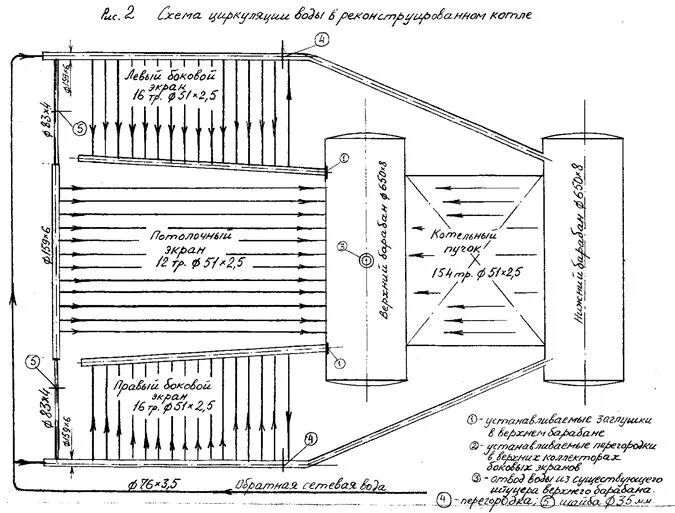 Рис. 2 Схема циркуляции воды в реконструированном котле
4
ф159×6
Левый боковой
экран
16 тр. ф51×2,5
ф83×4
5
1
ф159×6
Потолочный
экран
12 тр. ф51×2,5
3
Верхний барабан ф650×8
Котельный
пучок
154 тр. ф51×2,5
Нижний барабан ф650×8
1
5
ф83×4
Правый боковой
экран
16 тр. ф51×2,5
ф159×6
4
ф76×3,5 Обратная сетевая вода
1 - устанавливаемые заглушки
в верхнем барабане
2 - устанавливаемые перегородки
в верхних коллекторах
боковых экранов
3 - отвод воды из существующего
штуцера верхнего барабана.
4 - перегородка; 5 шайба ф35мм.